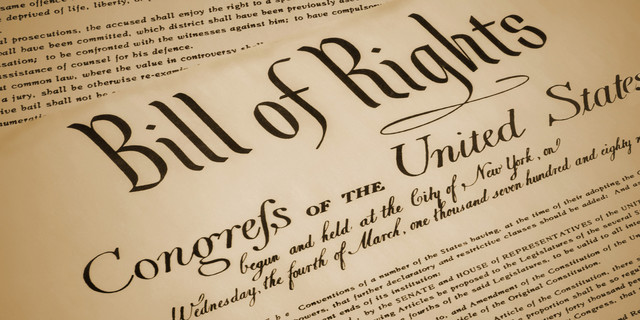 same offence
deprived of life, liberty,
prosecutions, the accused shall enjoy the right to a
have been committed, which district shall have been previously
to be confronted with the witnesses against him; to have
assistance of counsel for his defence.
common law, where the value in controversy
a jury, shall be otherwise
bail shall not be
Bill of Rights
Congreſs OF THE United States
begun and held at the City of New York, on
Wednesday, the fourth of March, one thousand seven hundred and eighty
Conventions of a number of the States having, at the time of their adopting the
that further declaratory and restrictive clauses should be added: And
ends of its institution:
by the SENATE and HOUSE of REPRESENTATIVES of the
Articles be proposed to the Legislatures of the several
fourths of the said Legislatures, to be valid to all
and Amendment of the Constitution of the
Article of the Original Constitution.